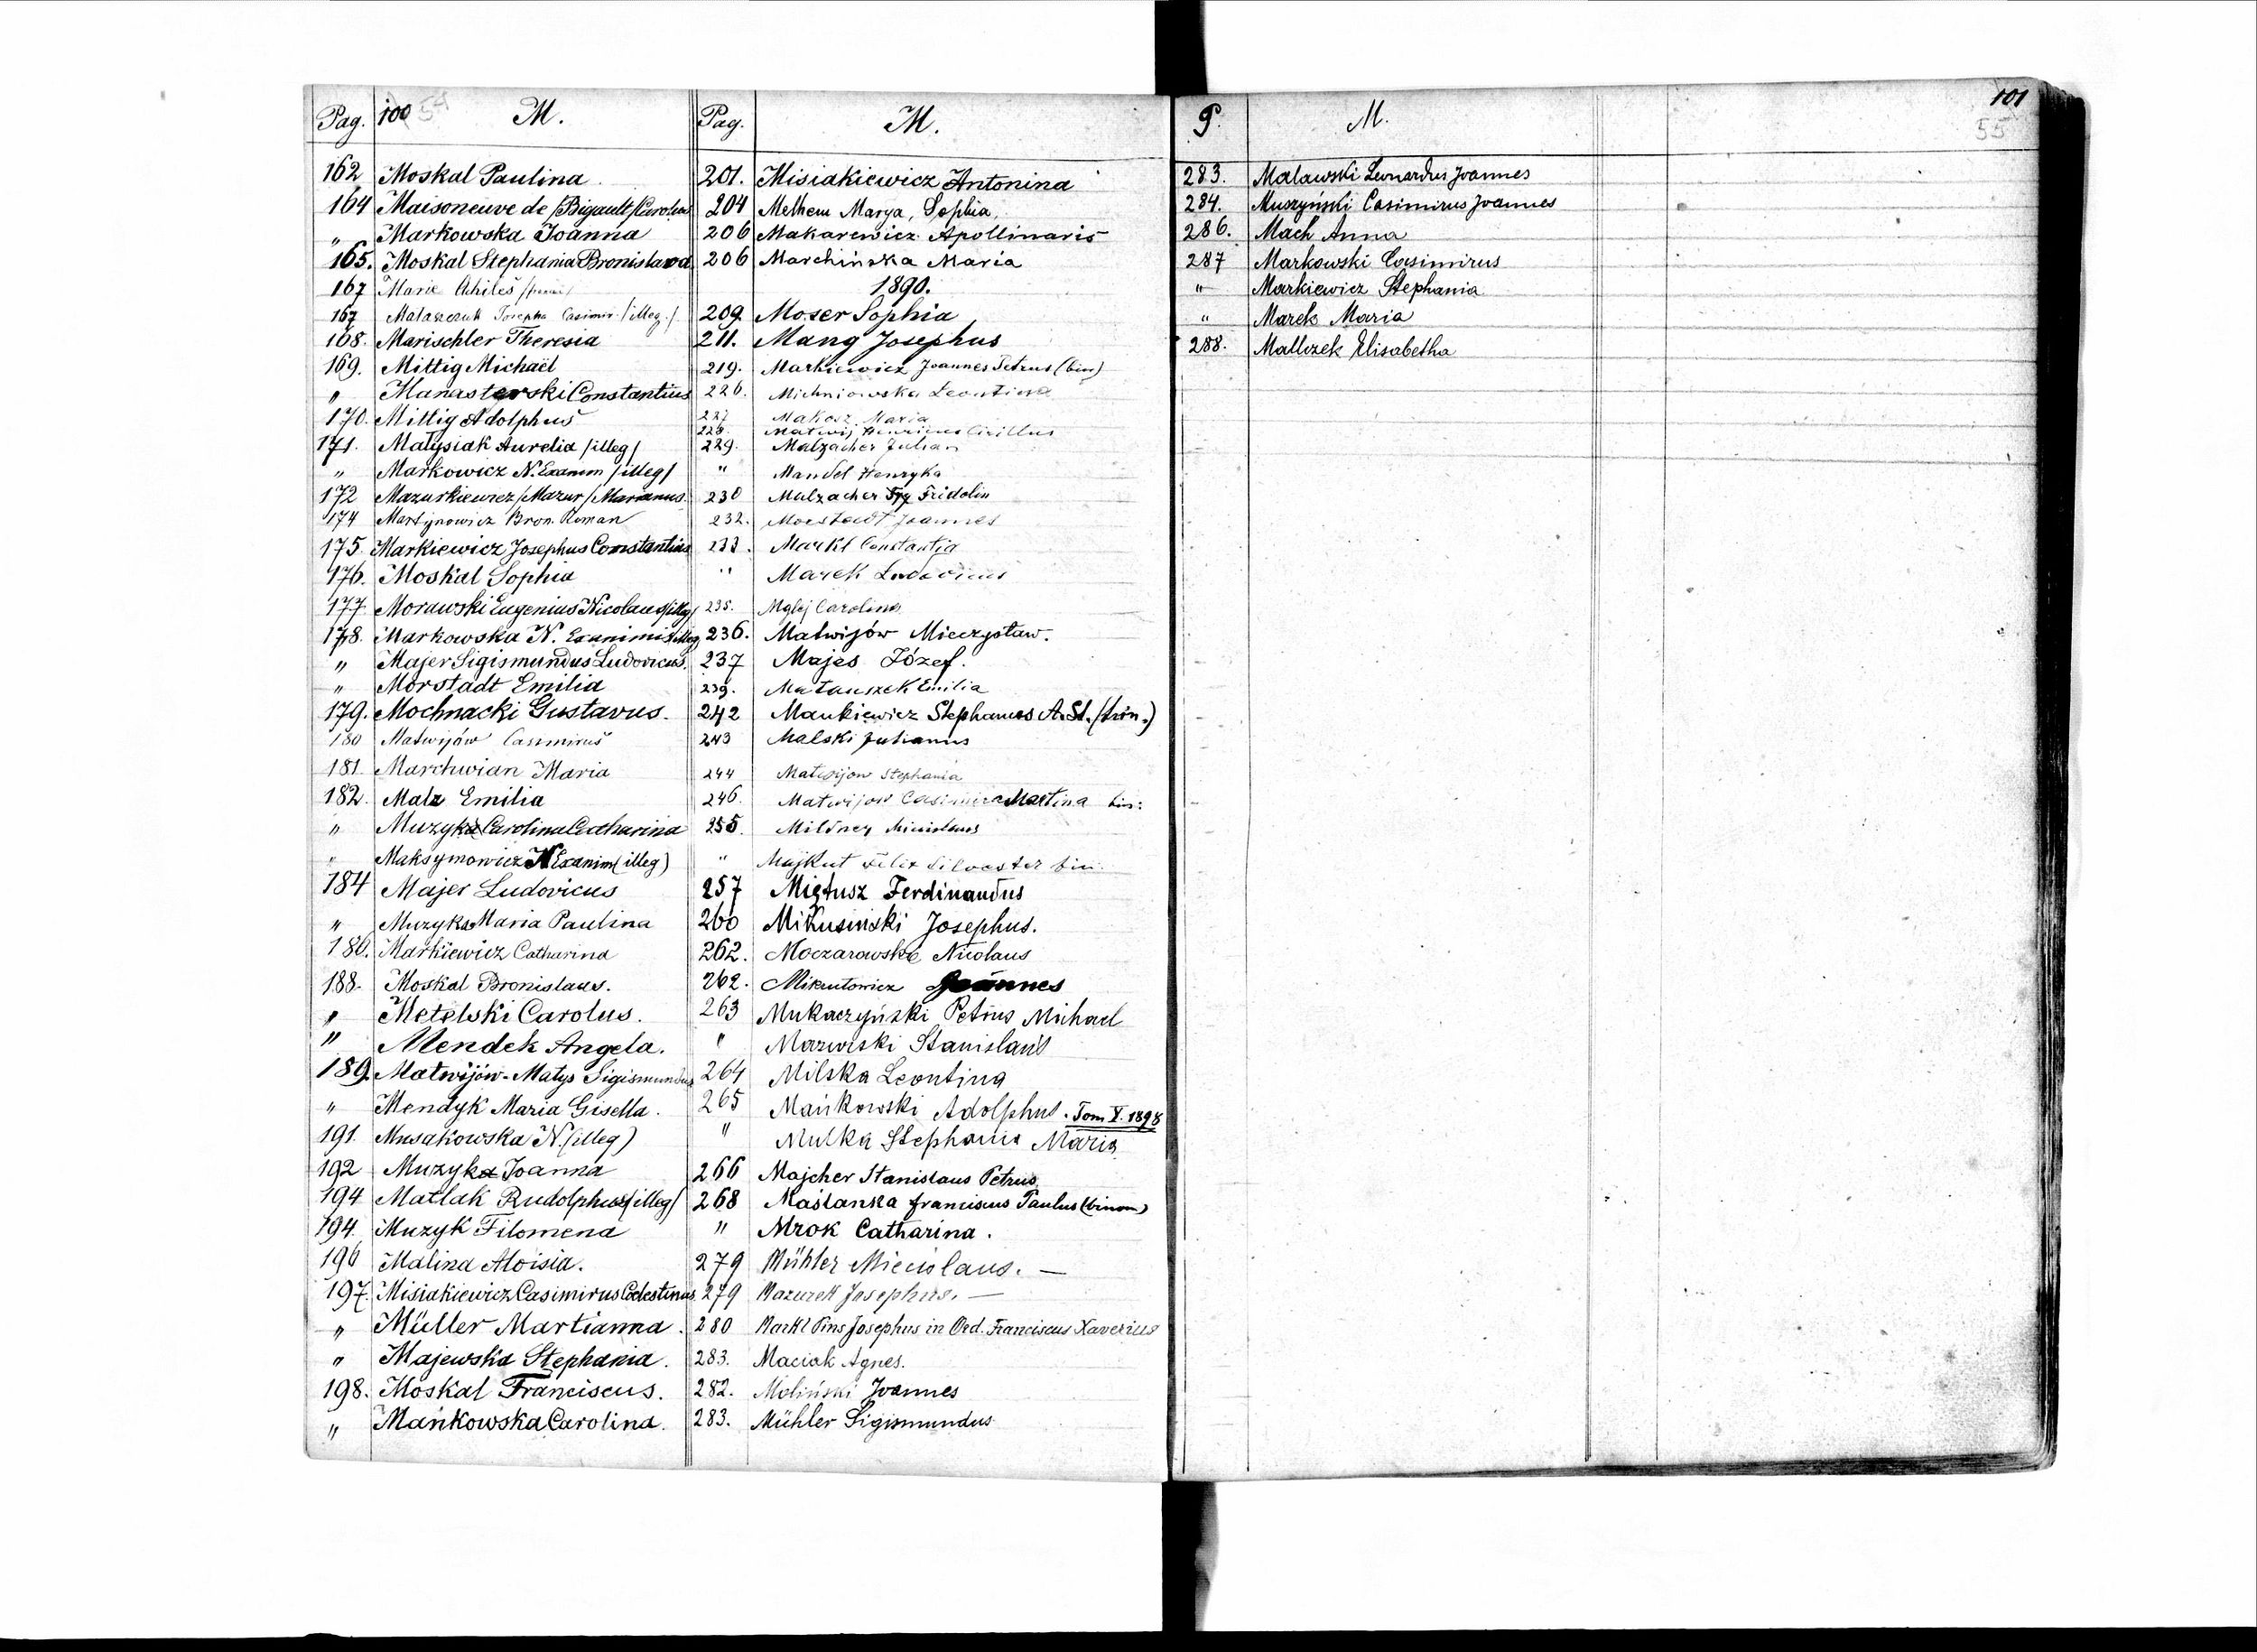 Pag. 100 54 M.
162 Moskal Paulina
164 Maisoneuve de /Bigault/ Carolus
" Markowska Joanna
165. Moskal Stephania Bronislava
167 Marie Achiles
167 Malaszczuk Josepha Casimir. /illeg./
168. Marischler Theresia
169. Mittig Michaël
" Manasterski Constantius
170. Mittig Adolphus
171. Małysiak Aurelia /illeg/
" Markowicz N. Exanim /illeg/
172 Mazurkiewicz /Mazur/ Marianus.
174 Martynowicz Bron. Roman
175. Markiewicz Josephus Constantius
176. Moskal Sophia
177. Morawski Eugenius Nicolaus /illeg/
178. Markowska N. Exanimis illeg
" Majer Sigismundus Ludovicus.
" Morstadt Emilia
179. Mochnacki Gustavus.
180 Matwijów Casimirus
181. Marchwian Maria
182. Malz Emilia
" Muzyka Carolina Catharina
" Maksymowicz N Exanim (illeg)
184 Majer Ludovicus
" Muzyka Maria Paulina
186. Markiewicz Catharina
188. Moskal Bronislaus.
" Metelski Carolus.
" Mendek Angela.
189. Matwijów-Matys Sigismundus
" Mendyk Maria Gisella.
191. Musakowska N. (illeg)
192 Muzyka Joanna
194. Matlak Rudolphus /illeg/
194. Muzyk Filomena
196 Malina Aloisia.
197. Misiakiewicz Casimirus Coelestinus
" Müller Martianna.
" Majewska Stephania.
198. Moskal Franciscus.
" Mańkowska Carolina.
Pag. M.
201. Misiakiewicz Antonina
204 Melhem Marya, Sophia.
206 Makarewicz Apollinaris
206 Marchińska Maria
1890.
209. Moser Sophia
211. Mang Josephus
219. Markiewicz Joannes Petrus (bin)
226. Michniowska Leontina
227 Makosz Maria
228. Matwij Henricus Cirillus
229. Malzacher Julian
" Mandel Henryka
230 Malzacher Fridolin
232. Morstadt Joannes
233. Markl Constantia
" Marek Ludovicus
235. Mglej Carolina
236. Matwijów Mieczysław.
237 Majes Józef.
239. Matauszek Emilia
242 Mankiewicz Stephanus A. St. (trin.)
243 Malski Julianus
244 Matwijow Stephania
246. Matwijow Casimira Martina bin:
255. Mildner Micislaus
" Majkut Felix Silvester bin.
257 Miętusz Ferdinandus
260 Mikusiński Josephus.
262. Moczarowski Nicolaus
262. Mikutowicz Joannes
263 Mukaczyński Petrus Michael
" Mazurski Stanislaus
264 Milska Leontina
265 Mańkowski Adolphus. Tom V. 1898
" Mulka Stephania Maria
266 Majcher Stanislaus Petrus
268 Maślanka Franciscus Paulus (binom)
" Mrok Catharina.
279 Mühler Miecislaus. —
279 Mazurek Josephus. —
280 Markl Pius Josephus in Ord. Franciscus Xaverius
283. Maciak Agnes.
282. Moliński Joannes
283. Mühler Sigismundus
P. M. 101
55
283. Malawski Leonardus Joannes
284. Muszyński Casimirus Joannes
286. Mach Anna
287 Markowski Casimirus
" Markiewicz Stephania
" Marek Maria
288. Mallczek Elisabetha